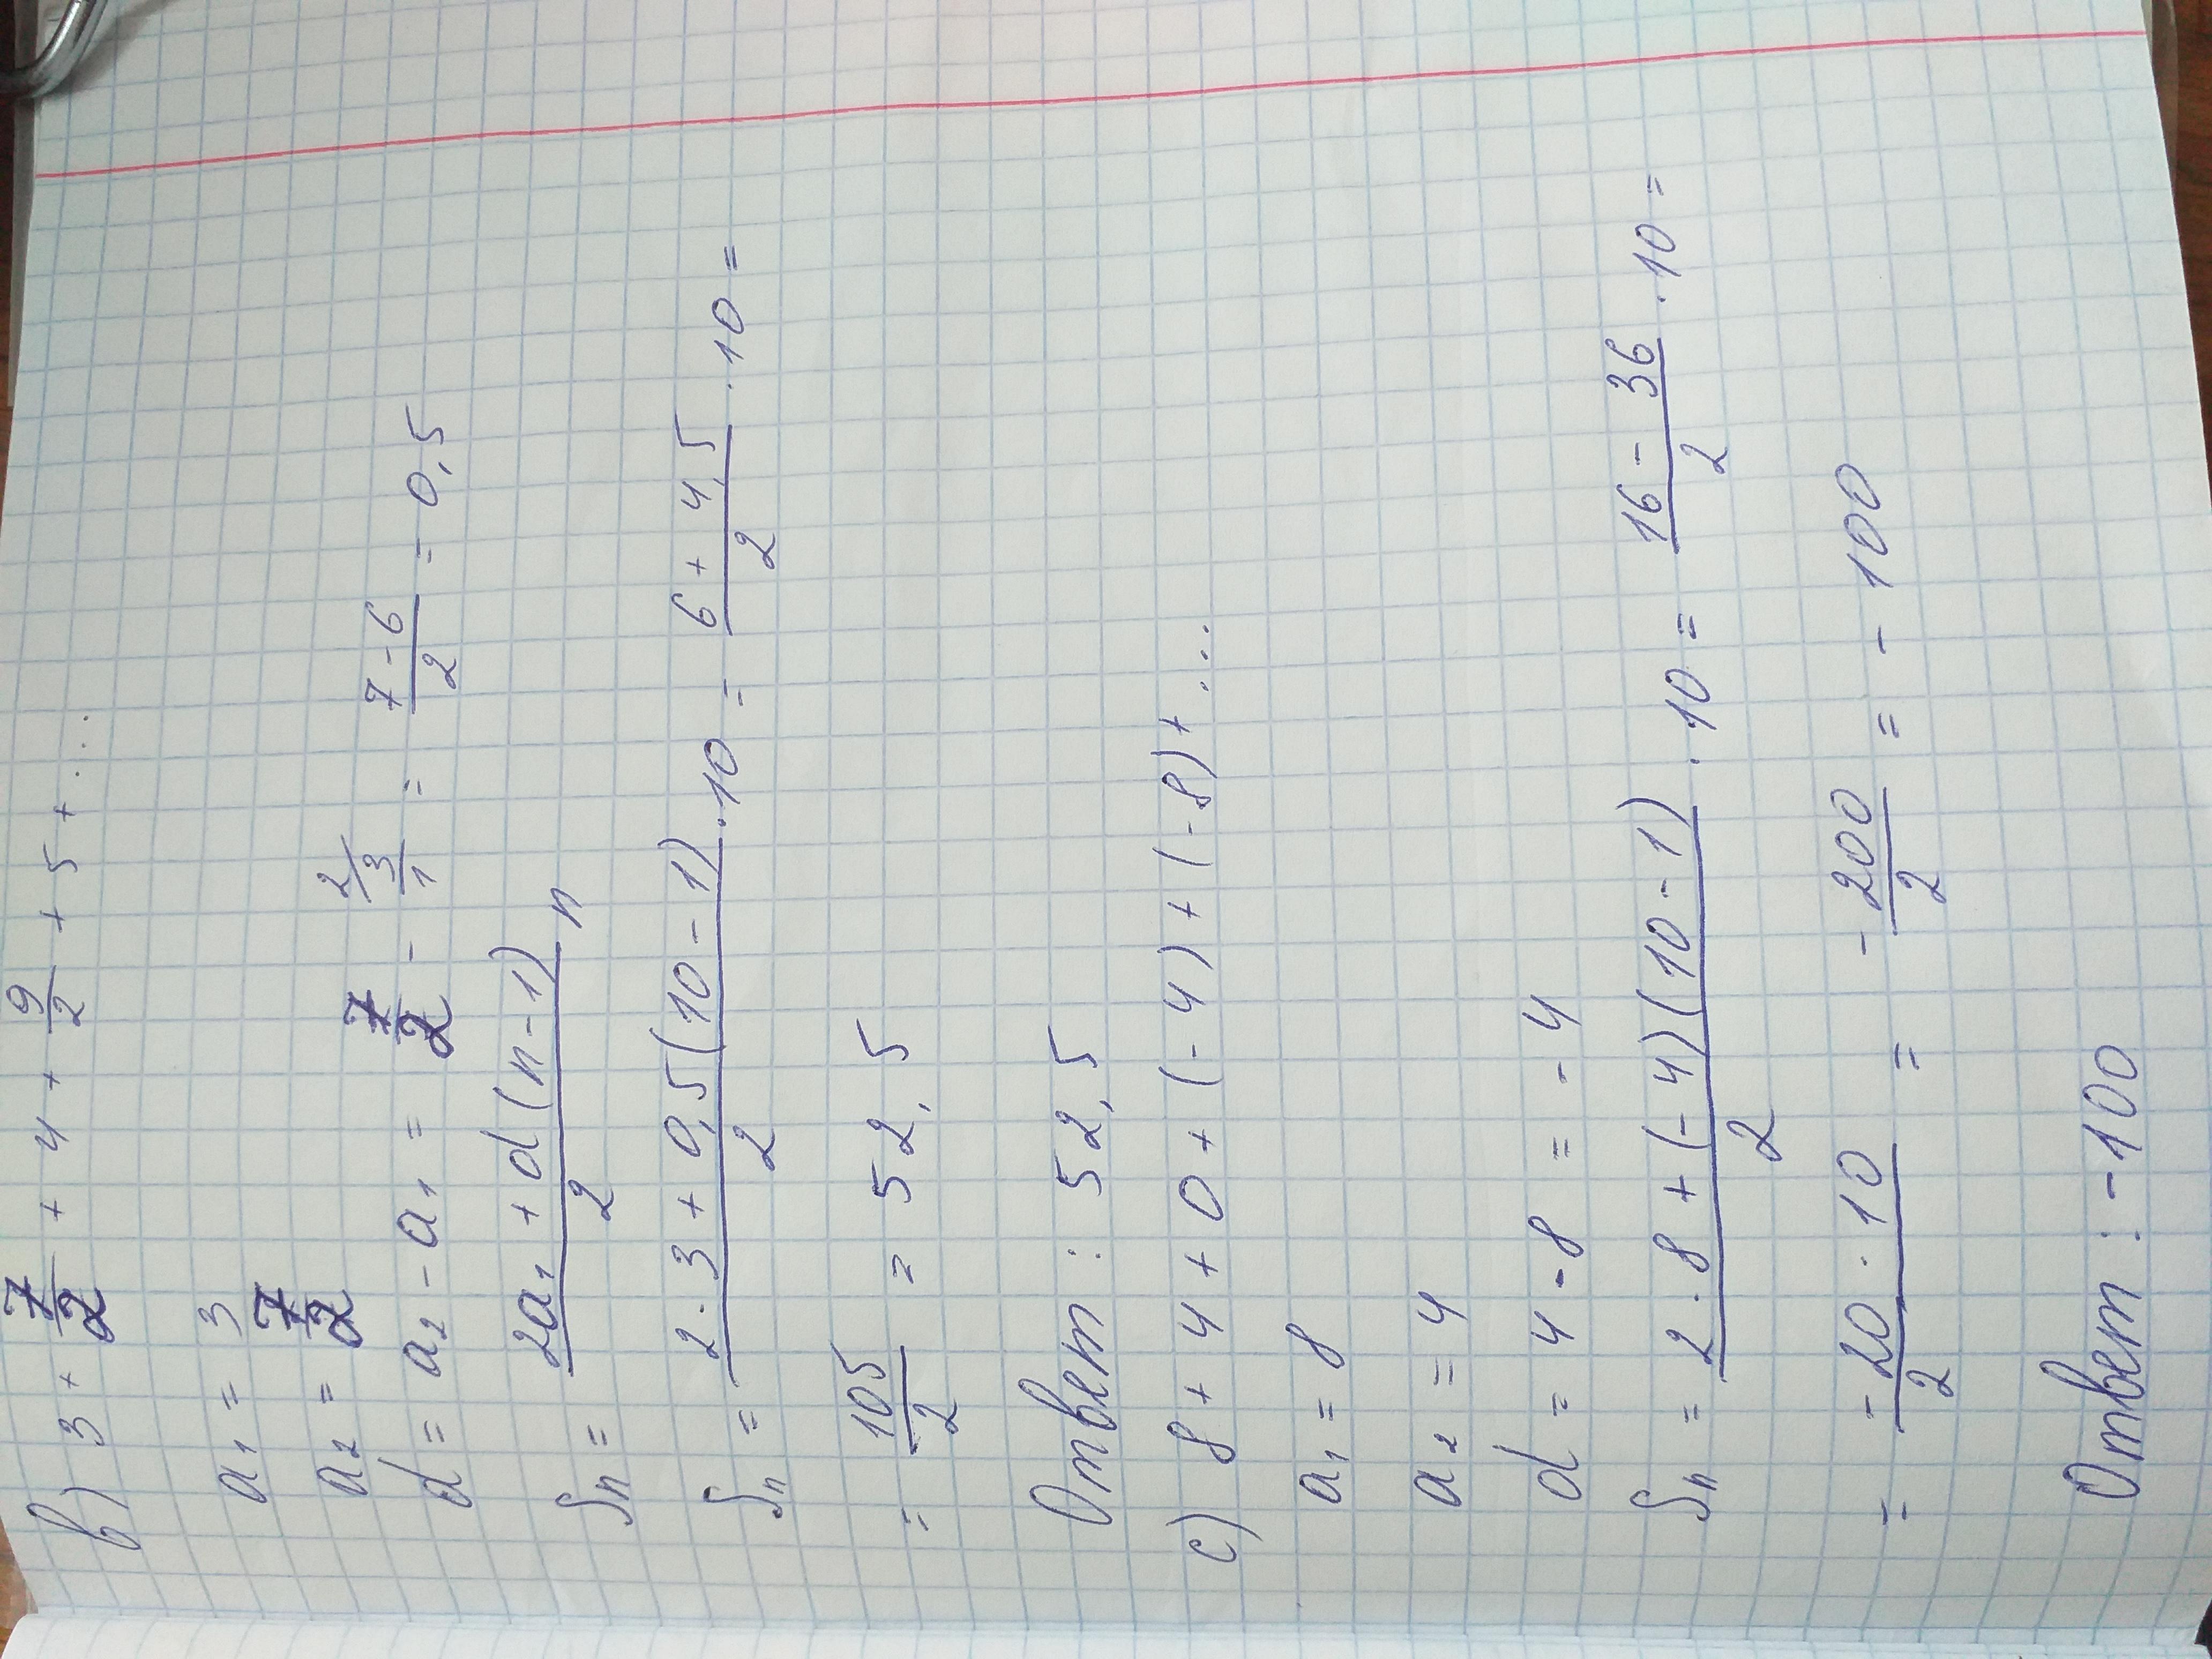 b) 3 + 7/2 + 4 + 9/2 + 5 + ...
a₁ = 3
a₂ = 7/2
d = a₂ - a₁ = 7/2 - ²⁄ 3/1 = (7 - 6)/2 = 0,5
Sn = (2a₁ + d(n-1))/2 n
Sn = (2·3 + 0,5(10-1))/2 ·10 = (6 + 4,5)/2 ·10 =
= 105/2 = 52,5
Ответ: 52,5
c) 8 + 4 + 0 + (-4) + (-8) + ...
a₁ = 8
a₂ = 4
d = 4 - 8 = -4
Sn = (2·8 + (-4)(10-1))/2 ·10 = (16 - 36)/2 ·10 =
= (-20·10)/2 = -200/2 = -100
Ответ: -100